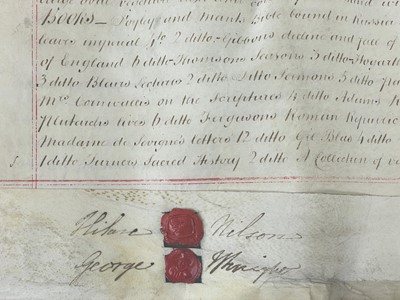 Books_ Popes and Mants Bible bound in Russia
leaves imperial 4to 2 ditto_ Gibbons decline and fall of
of England 6 ditto_ Thomsons Seasons 3 ditto_ Hogarth
3 ditto Blairs Lectures 2 ditto Ditto Sermons 5 ditto
Mrs on the Scriptures 4 ditto Adams
Plutarchs lives 6 ditto Fergusons Roman republic
Madame de Sevigne's letters 12 ditto Gil Blas 4 ditto
1 ditto Turners Sacred History 2 ditto A Collection of
Wilson
George